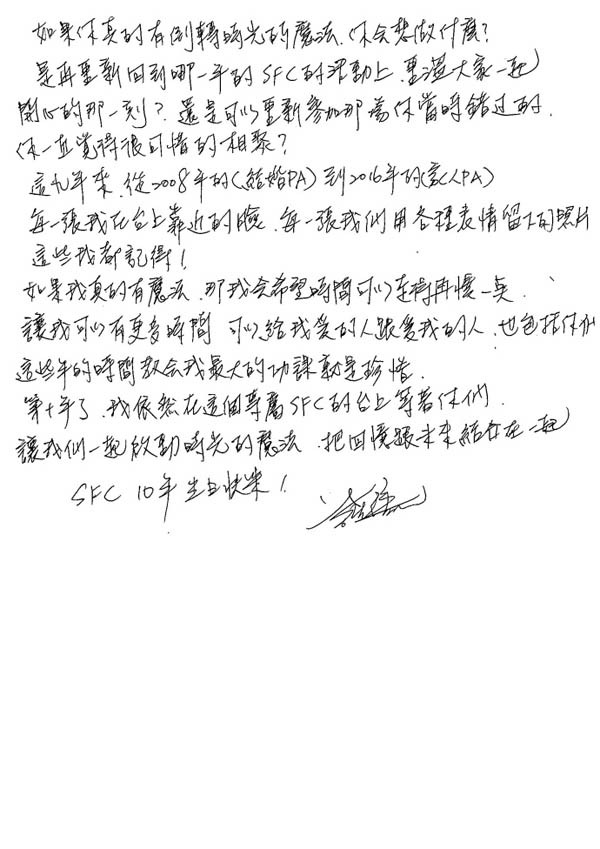 如果你真的有倒轉時光的魔法，你會想做什麼？
是再重新回到哪一年的SFC的活動上，重溫大家一起
開心的那一刻？還是可以重新參加那為你當時錯過的，
你一直覺得很可惜的相聚？
這九年來，從2008年的（結婚PA）到2016年的（家人PA）
每一張我在台上靠近的臉，每一張我們用各種表情留下的照片
這些我都記得！
如果我真的有魔法，那我會希望時間可以走得再慢一點，
讓我可以有更多時間，可以給我愛的人跟愛我的人，也包括你們
這些年的時間教會我最大的功課就是珍惜，
第十年了，我依然在這個專屬SFC的台上等著你們，
讓我們一起啟動時光的魔法，把回憶跟未來結合在一起
SFC 10年生日快樂！